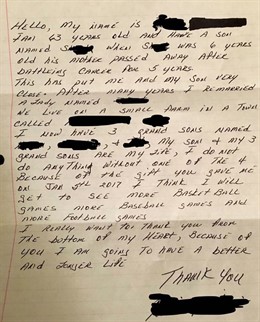 HELLO, MY NAME IS
I AM 63 YEARS OLD AND HAVE A SON
NAMED S WHEN S WAS 6 YEARS
OLD HIS MOTHER PASSED AWAY AFTER
BATTELING CANCER FOR 5 YEARS.
THIS HAS PUT ME AND MY SON VERY
CLOSE. AFTER MANY YEARS I REMARRIED
A LADY NAMED
WE LIVE ON A SMALL FARM IN A TOWN
CALLED
I NOW HAVE 3 GRAND SONS NAMED
, , + MY SON + MY 3
GRAND SONS ARE MY LIFE, I DO NOT
DO ANYTHING WITHOUT ONE OF THE 4
BECAUSE OF THE GIFT YOU GAVE ME
ON JAN 5TH 2017 I THINK I WILL
GET TO SEE MORE BASKETBALL
GAMES MORE BASEBALL GAMES AND
MORE FOOTBALL GAMES
I REALLY WANT TO THANK YOU FROM
THE BOTTOM OF MY HEART, BECAUSE OF
YOU I AM GOING TO HAVE A BETTER
AND LONGER LIFE
THANK YOU